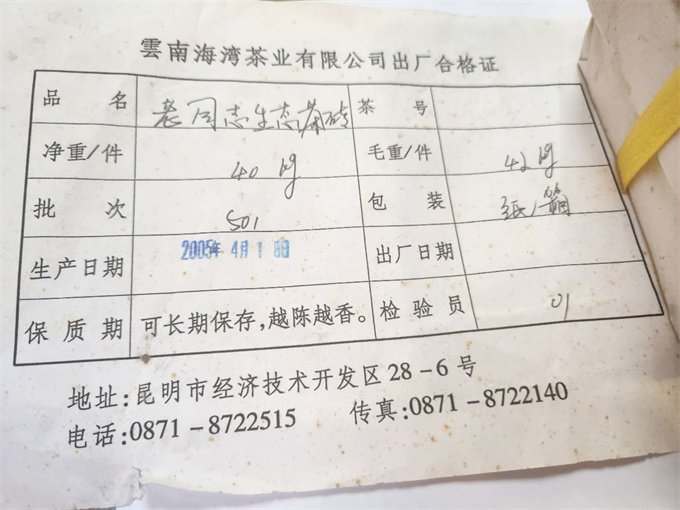 雲南海湾茶业有限公司出厂合格证
品 名 老同志生态茶砖 茶 号
净重/件 40 kg 毛重/件 42 kg
批 次 501 包 装 纸/箱
生产日期 2005年 4月 1 8日 出厂日期
保 质 期 可长期保存,越陈越香。 检 验 员 01
地址:昆明市经济技术开发区28-6号
电话:0871-8722515 传真:0871-8722140